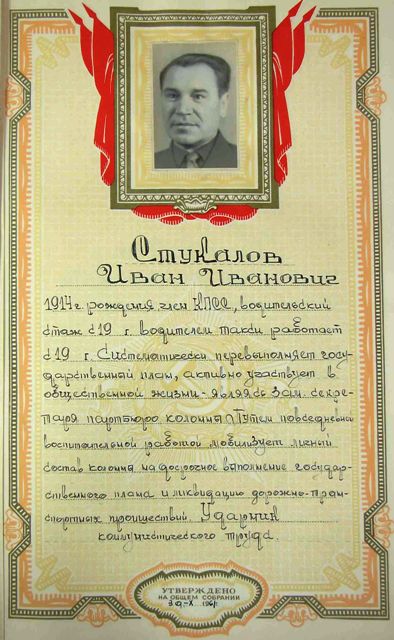 Стукалов
Иван Иванович
1914 г. рождения, член КПСС, водительский
стаж с 19 г. водителем такси работает
с 19 г. Систематически перевыполняет госу-
дарственный план, активно участвует в
общественной жизни - являясь зам. секре-
таря партбюро колонны. Путем повседневной
воспитательной работой мобилизует личный
состав колонны на досрочное выполнение государ-
ственного плана и ликвидацию дорожно-тран-
спортных проишествий. Ударник
коммунистического труда.
УТВЕРЖДЕНО
НА ОБЩЕМ СОБРАНИИ